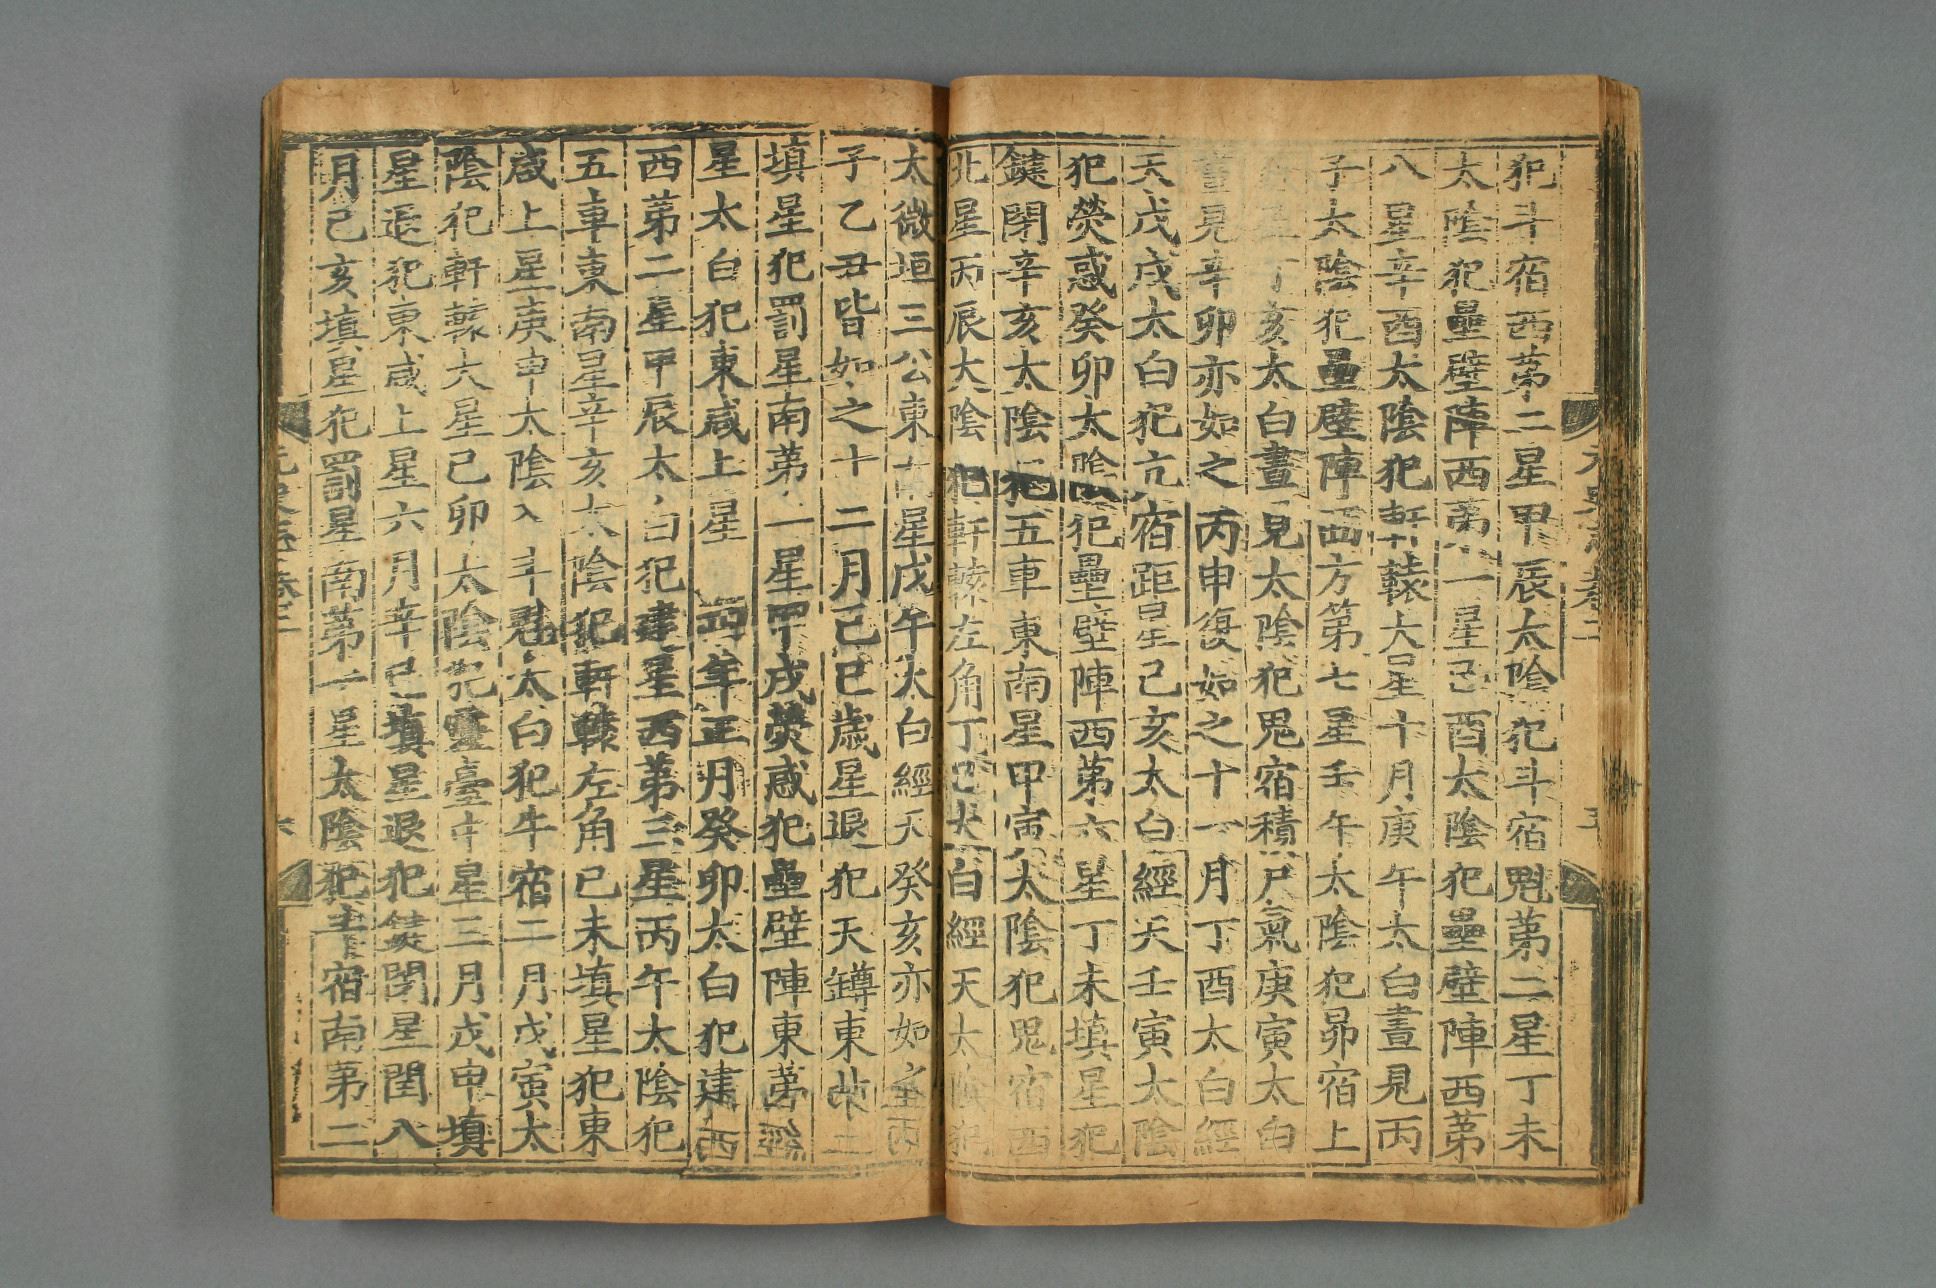 犯斗宿西第二星甲辰太陰犯斗宿魁第二星丁未
太陰犯壘壁陣西第一星己酉太陰犯壘壁陣西第
八星辛酉太陰犯軒轅大星十月庚午太白晝見丙
子太陰犯壘壁陣西方第七星壬午太陰犯昴宿上
丁亥太白晝見太陰犯鬼宿積尸氣庚寅太白
晝見辛卯亦如之丙申復如之十一月丁酉太白經
天戊戌太白犯亢宿距星己亥太白經天壬寅太陰
犯熒惑癸卯太陰犯壘壁陣西第六星丁未填星犯
鍵閉辛亥太陰犯五車東南星甲寅太陰犯鬼宿西
北星丙辰太陰犯軒轅左角丁巳太白經天太陰犯
太微垣三公東南星戊午太白經天癸亥亦如之丙
子乙丑皆如之十二月己巳歲星退犯天罇東北二
填星犯罰星南第一星甲戌熒惑犯壘壁陣東第
星太白犯東咸上星 四年正月癸卯太白犯建西
西第二星甲辰太白犯建星西第三星丙午太陰犯
五車東南星辛亥太陰犯軒轅左角己未填星犯東
咸上星庚申太陰入斗魁太白犯牛宿二月戊寅太
陰犯軒轅大星己卯太陰犯靈臺中星三月戊申填
星退犯東咸上星六月辛巳填星退犯鍵閉星閏八
月己亥填星犯罰星南第一星太陰犯宿南第二
元史志卷三
六